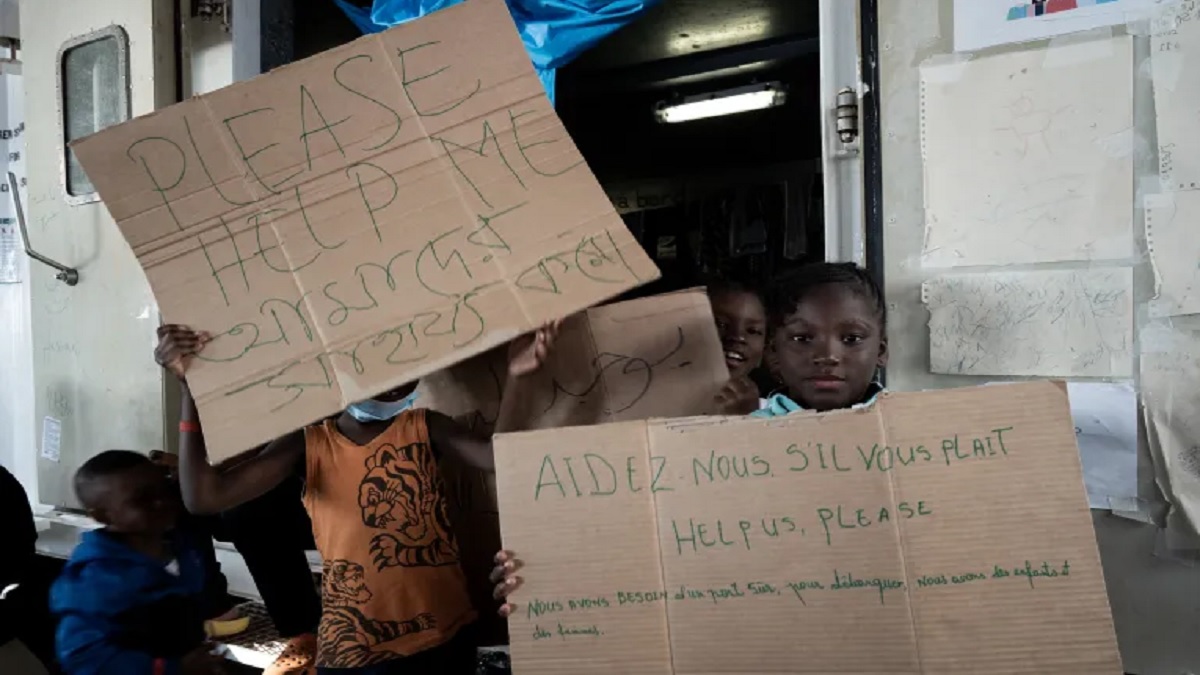 PLEASE
HELP ME
আমাদের
সাহায্য করো
AIDEZ-NOUS. S'IL VOUS PLAIT
HELP US, PLEASE
NOUS AVONS BESOIN d'un port sûr, pour débarquer, nous avons des enfants et
des femmes.